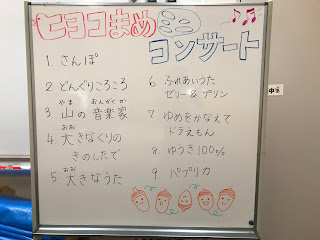 ヒヨコまめ ミニ
コンサート
1. さんぽ
2 どんぐりころころ
やま おんがくか
3 山の音楽家
おお
4 大きなくりの
きのしたで
おお
5 大きなうた
6. ふれあいうた
ゼリー&プリン
7 ゆめをかなえて
ドラえもん
8. ゆうき100%
9 パプリカ